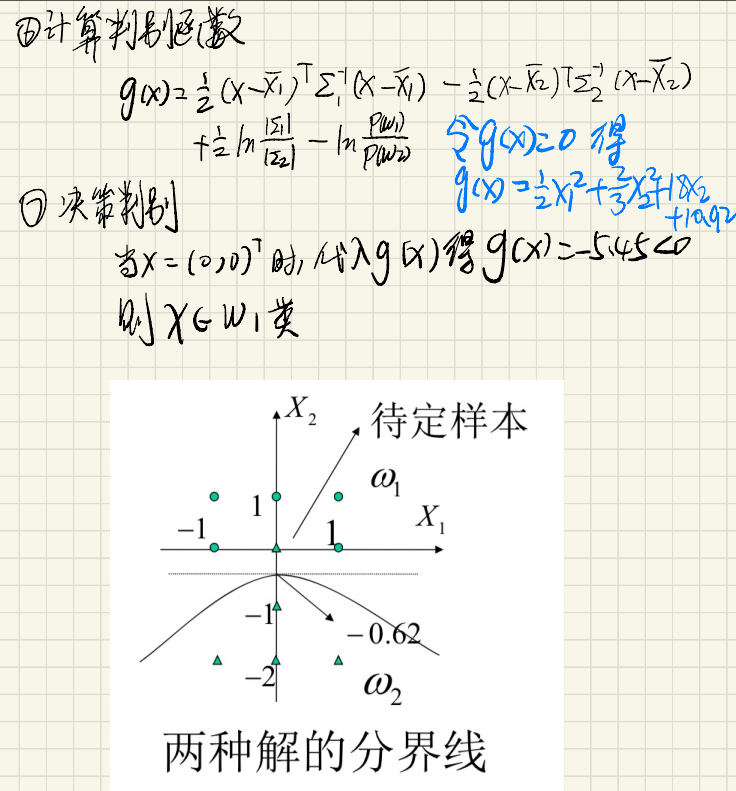 ⑥计算判别函数
g(x)=½(x-x̄₁)ᵀΣ₁⁻¹(x-x̄₁) -½(x-x̄₂)ᵀΣ₂⁻¹(x-x̄₂)
+½ ln |Σ₁|/|Σ₂| - ln P(w₁)/P(w₂) 令g(x)=0 得
g(x)=½x₁²+⅔x₂²+18x₂
+10.92
⑦ 决策判别
当x=(0,0)ᵀ时,代入g(x)得g(x)=-5.45<0
则 x∈w₁类
X₂
待定样本
ω₁
1
-1
1
X₁
-1
-0.62
-2
ω₂
两种解的分界线